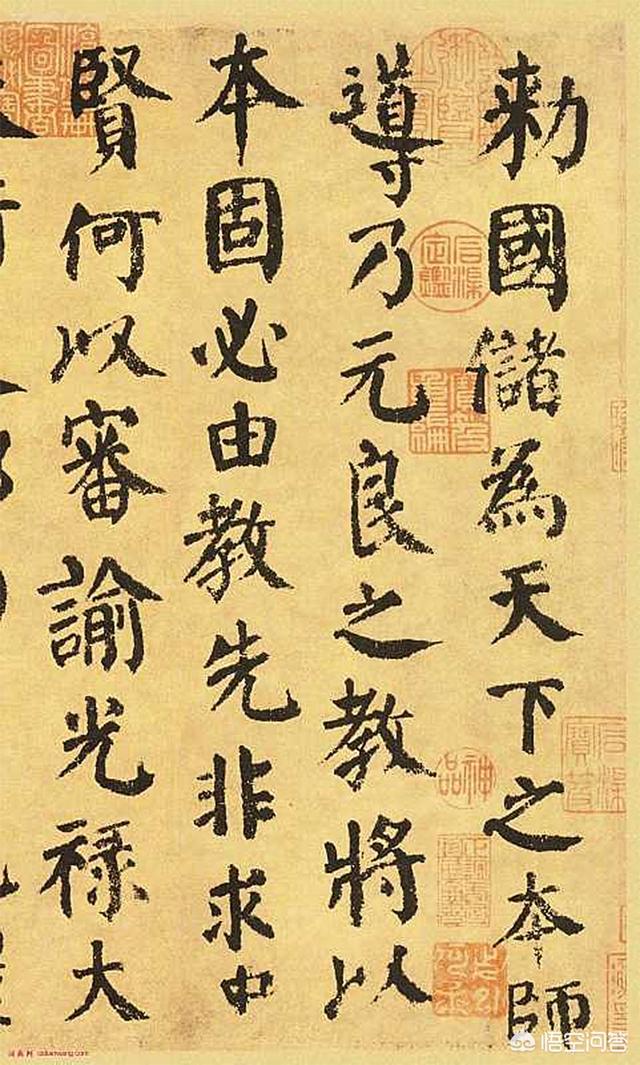 勅國儲為天下之本師
導乃元良之教將以
本固必由教先非求中
賢何以審諭光祿大
神品
悟空问答